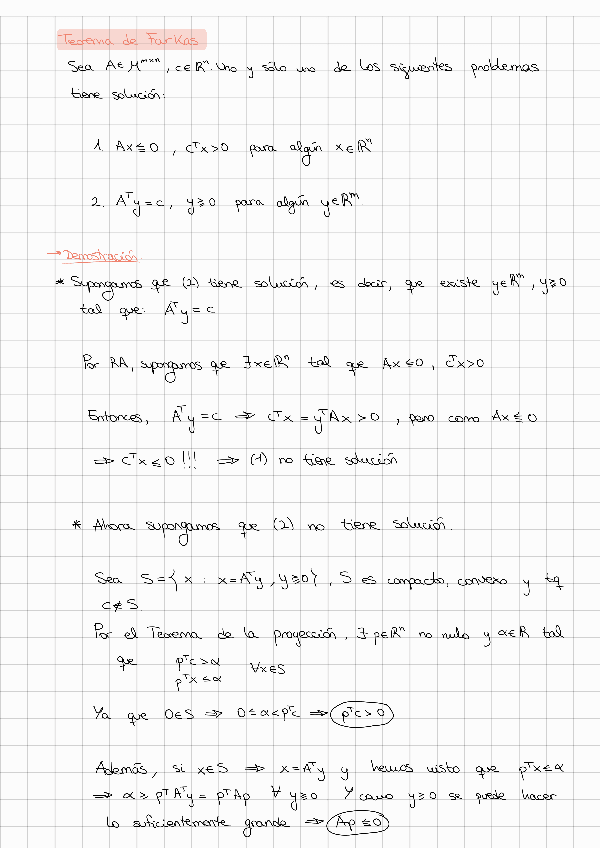 Teorema de Farkas
Sea A∈M^mxn, c∈ℝ^n. Uno y sólo uno de los siguientes problemas
tiene solución:
1. Ax≤0, c^Tx>0 para algún x∈ℝ^n
2. A^Ty=c, y≥0 para algún y∈ℝ^m
→Demostración
* Supongamos que (2) tiene solución, es decir, que existe y∈ℝ^m, y≥0
tal que: A^Ty=c
Por RA, supongamos que ∃x∈ℝ^n tal que Ax≤0, c^Tx>0
Entonces, A^Ty=c ⇒ c^Tx=y^TAx>0, pero como Ax≤0
⇒ c^Tx≤0!!! ⇒ (1) no tiene solución
* Ahora supongamos que (2) no tiene solución.
Sea S={x : x=A^Ty, y≥0}, S es compacto, convexo y tq
c∉S.
Por el Teorema de la proyección, ∃ p∈ℝ^n no nulo y α∈ℝ tal
que p^Tc>α ∀x∈S
p^Tx≤α
Ya que 0∈S ⇒ 0≤α<p^Tc ⇒ p^Tc>0
Además, si x∈S ⇒ x=A^Ty y hemos visto que p^Tx≤α
⇒ α≥p^TA^Ty=p^TAp ∀ y≥0 Y como y≥0 se puede hacer
lo suficientemente grande ⇒ Ap≤0